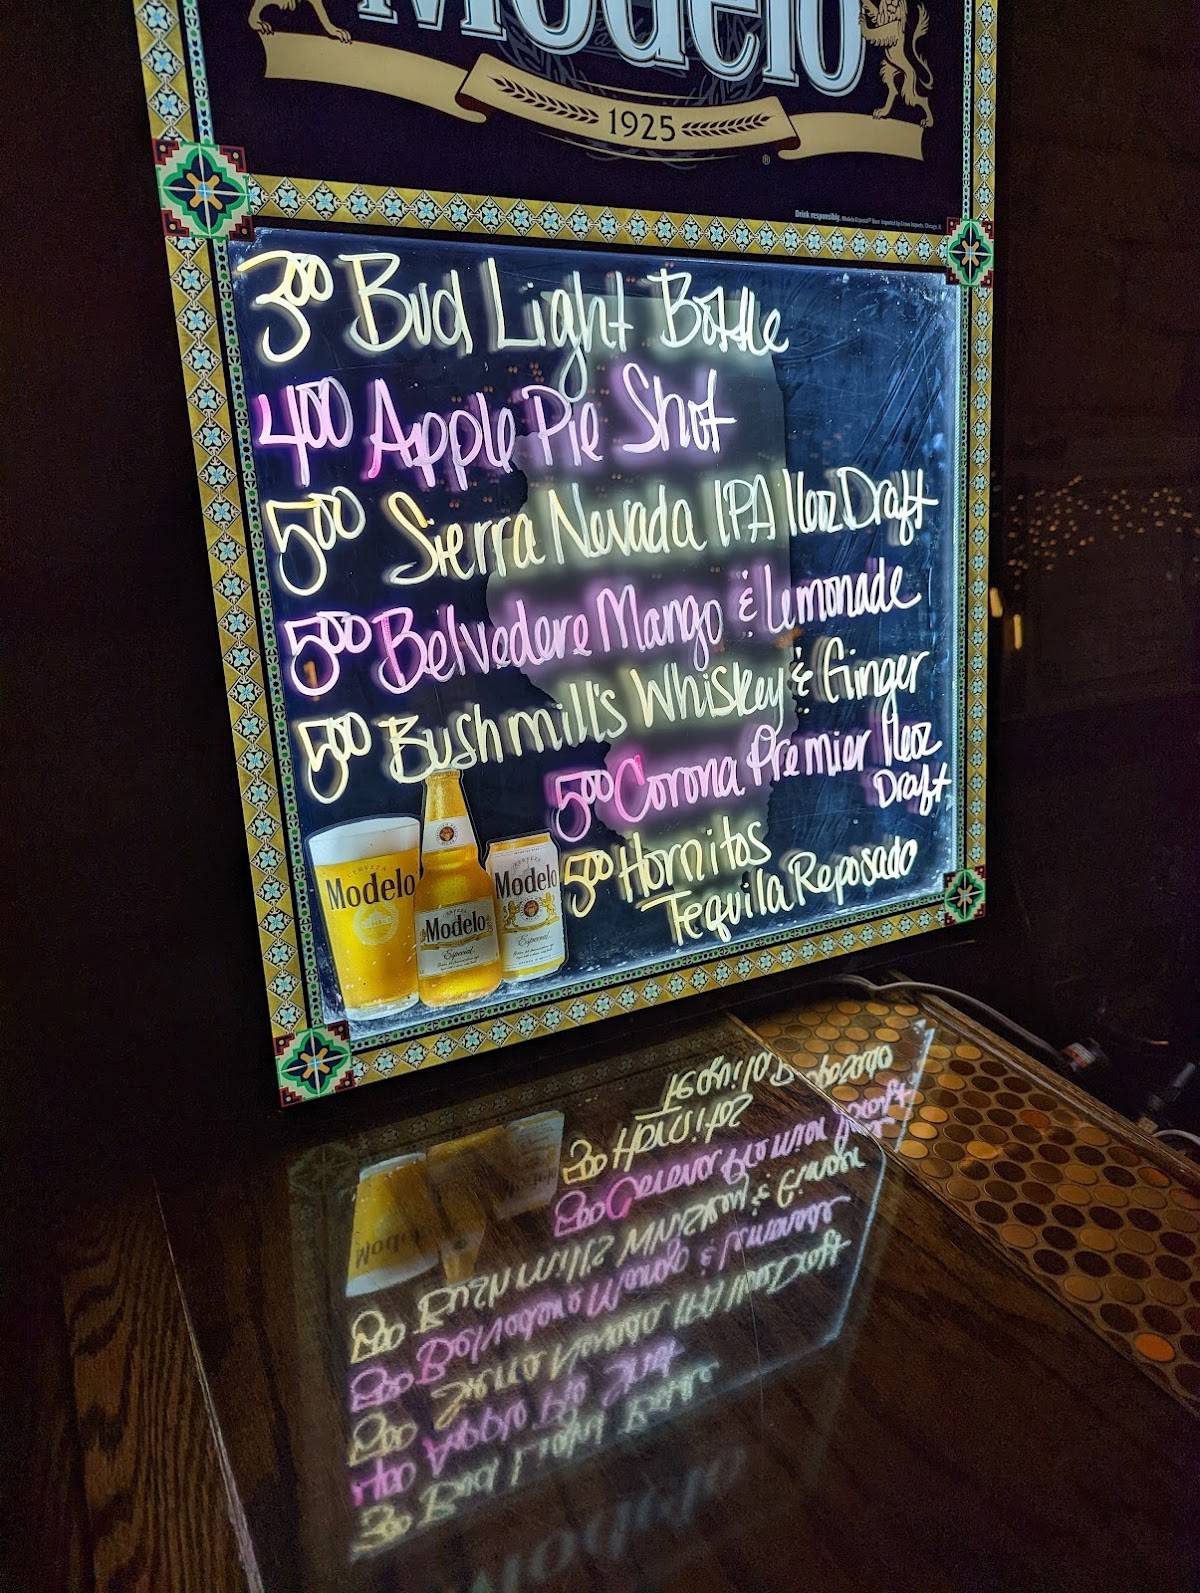 Modelo
1925
Drink responsibly.
300 Bud Light Bottle
400 Apple Pie Shot
500 Sierra Nevada IPA 16oz Draft
500 Belvedere Mango & Lemonade
500 Bushmill's Whiskey & Ginger
500 Corona Premier 16oz
Draft
500 Hornitos
Tequila Reposado
Modelo
Modelo
Especial
Modelo
Especial